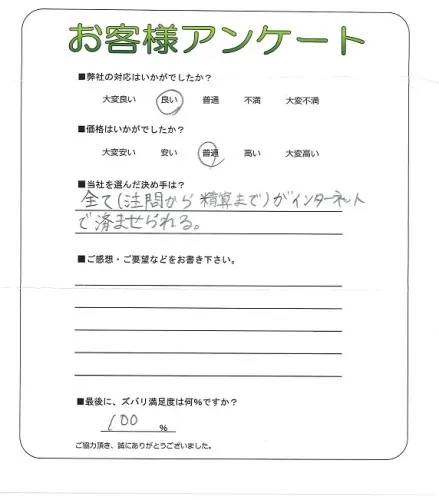 お客様アンケート
■弊社の対応はいかがでしたか？
大変良い 良い 普通 不満 大変不満
■価格はいかがでしたか？
大変安い 安い 普通 高い 大変高い
■当社を選んだ決め手は？
全て(注問から精算まで)がインターネット
で済ませられる。
■ご感想・ご要望などをお書き下さい。
■最後に、ズバリ満足度は何％ですか？
100 ％
ご協力頂き、誠にありがとうございました。